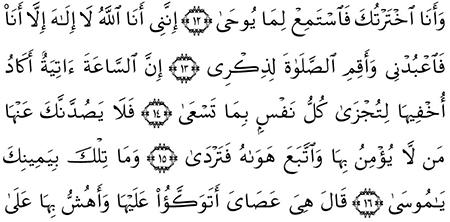 وَأَنَا ٱخْتَرْتُكَ فَٱسْتَمِعْ لِمَا يُوحَىٰ ١٢ إِنَّنِى أَنَا ٱللَّهُ لَا إِلَـٰهَ إِلَّا أَنَا۠
فَٱعْبُدْنِى وَأَقِمِ ٱلصَّلَوٰةَ لِذِكْرِى ١٣ إِنَّ ٱلسَّاعَةَ ءَاتِيَةٌ أَكَادُ
أُخْفِيهَا لِتُجْزَىٰ كُلُّ نَفْسٍۭ بِمَا تَسْعَىٰ ١٤ فَلَا يَصُدَّنَّكَ عَنْهَا
مَن لَّا يُؤْمِنُ بِهَا وَٱتَّبَعَ هَوَىٰهُ فَتَرْدَىٰ ١٥ وَمَا تِلْكَ بِيَمِينِكَ
يَـٰمُوسَىٰ ١٦ قَالَ هِىَ عَصَاىَ أَتَوَكَّؤُا۟ عَلَيْهَا وَأَهُشُّ بِهَا عَلَىٰ